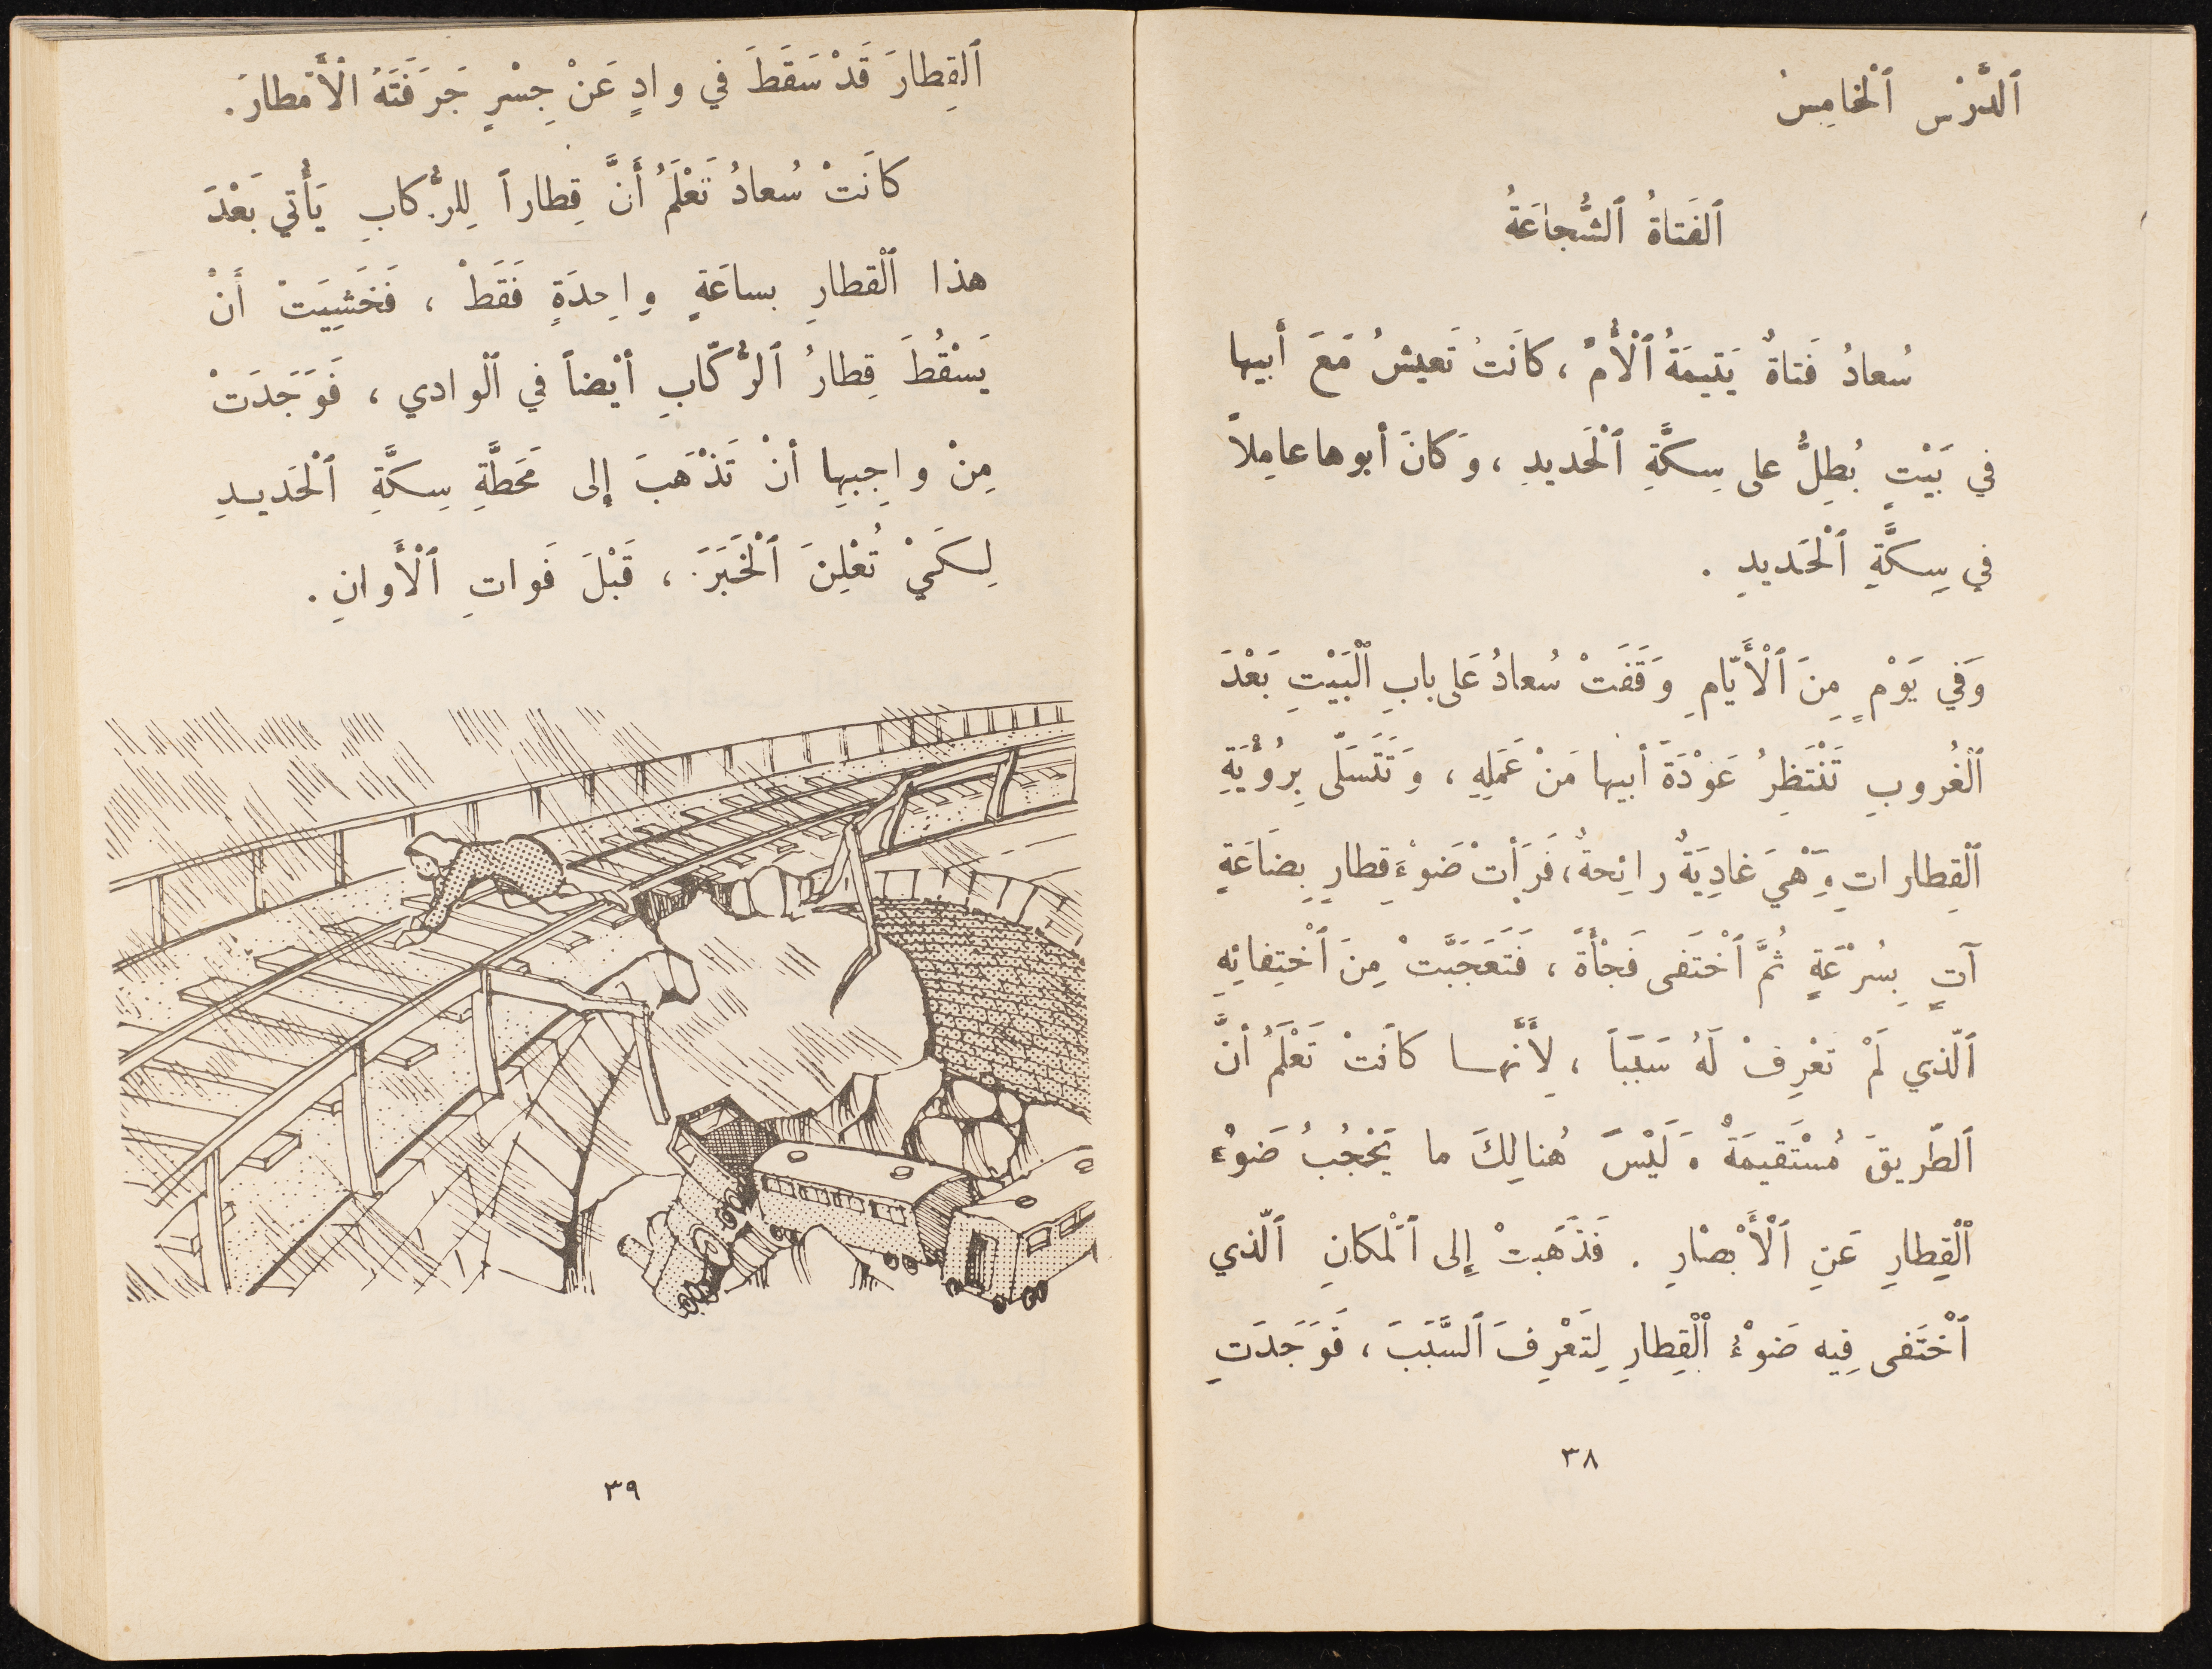 ٱلدَّرْس ٱلْخامِسْ
ٱلفَتاةُ ٱلشُّجاعَةُ
سُعادُ فَتاةٌ يَتيمَةُ ٱلْأُمِّ ، كانَتْ تَعيشُ مَعَ أَبيها
في بَيْتٍ يُطِلُّ على سِكَّةِ ٱلْحَديدِ ، وَكانَ أبوها عامِلاً
في سِكَّةِ ٱلْحَديدِ .
وَفي يَوْمٍ مِنَ ٱلْأَيّامِ وَقَفَتْ سُعادُ عَلى بابِ ٱلْبَيْتِ بَعْدَ
ٱلْغُروبِ تَنْتَظِرُ عَوْدَةَ أبيها مَنْ عَمَلِهِ ، وَتَتَسَلّى بِرُؤْيَةِ
ٱلْقِطاراتِ وَهْيَ غادِيَةٌ رائِحةٌ ، فَرَأَتْ ضَوْءَ قِطارِ بِضاعَةٍ
آتٍ بِسُرْعَةٍ ثُمَّ ٱخْتَفى فَجْأَةً ، فَتَعَجَّبَتْ مِنَ ٱخْتِفائِهِ
ٱلَّذي لَمْ تَعْرِفْ لَهُ سَبَبَاً ، لِأَنَّهـا كانَتْ تَعْلَمُ أنَّ
ٱلطَّريقَ مُسْتَقيمَةٌ وَلَيْسَ هُنالِكَ ما يَحْجُبُ ضَوْءَ
ٱلْقِطارِ عَنِ ٱلْأَبْصارِ . فَذَهَبَتْ إِلى ٱلْمَكانِ ٱلَّذي
ٱخْتَفى فِيه ضَوْءُ ٱلْقِطارِ لِتَعْرِفَ ٱلسَّبَبَ ، فَوَجَدَتِ
٣٨
ٱلقِطارَ قَدْ سَقَطَ في وادٍ عَنْ جِسْرٍ جَرَفَتْهُ الْأَمْطارُ .
كانَتْ سُعادُ تَعْلَمُ أَنَّ قِطاراً لِلرُّكابِ يَأْتي بَعْدَ
هذا ٱلْقطارِ بساعَةٍ واحِدَةٍ فَقَطْ ، فَخَشِيَتْ أَنْ
يَسْقُطَ قِطارُ ٱلرُّكّابِ أيْضاً في ٱلْوادي ، فَوَجَدَتْ
مِنْ واجِبِها أنْ تَذْهَبَ إِلى مَحَطَّةِ سِكَّةِ ٱلْحَديـدِ
لِكَيْ تُعْلِنَ ٱلْخَبَرَ ، قَبْلَ فَواتِ ٱلْأَوانِ .
٣٩